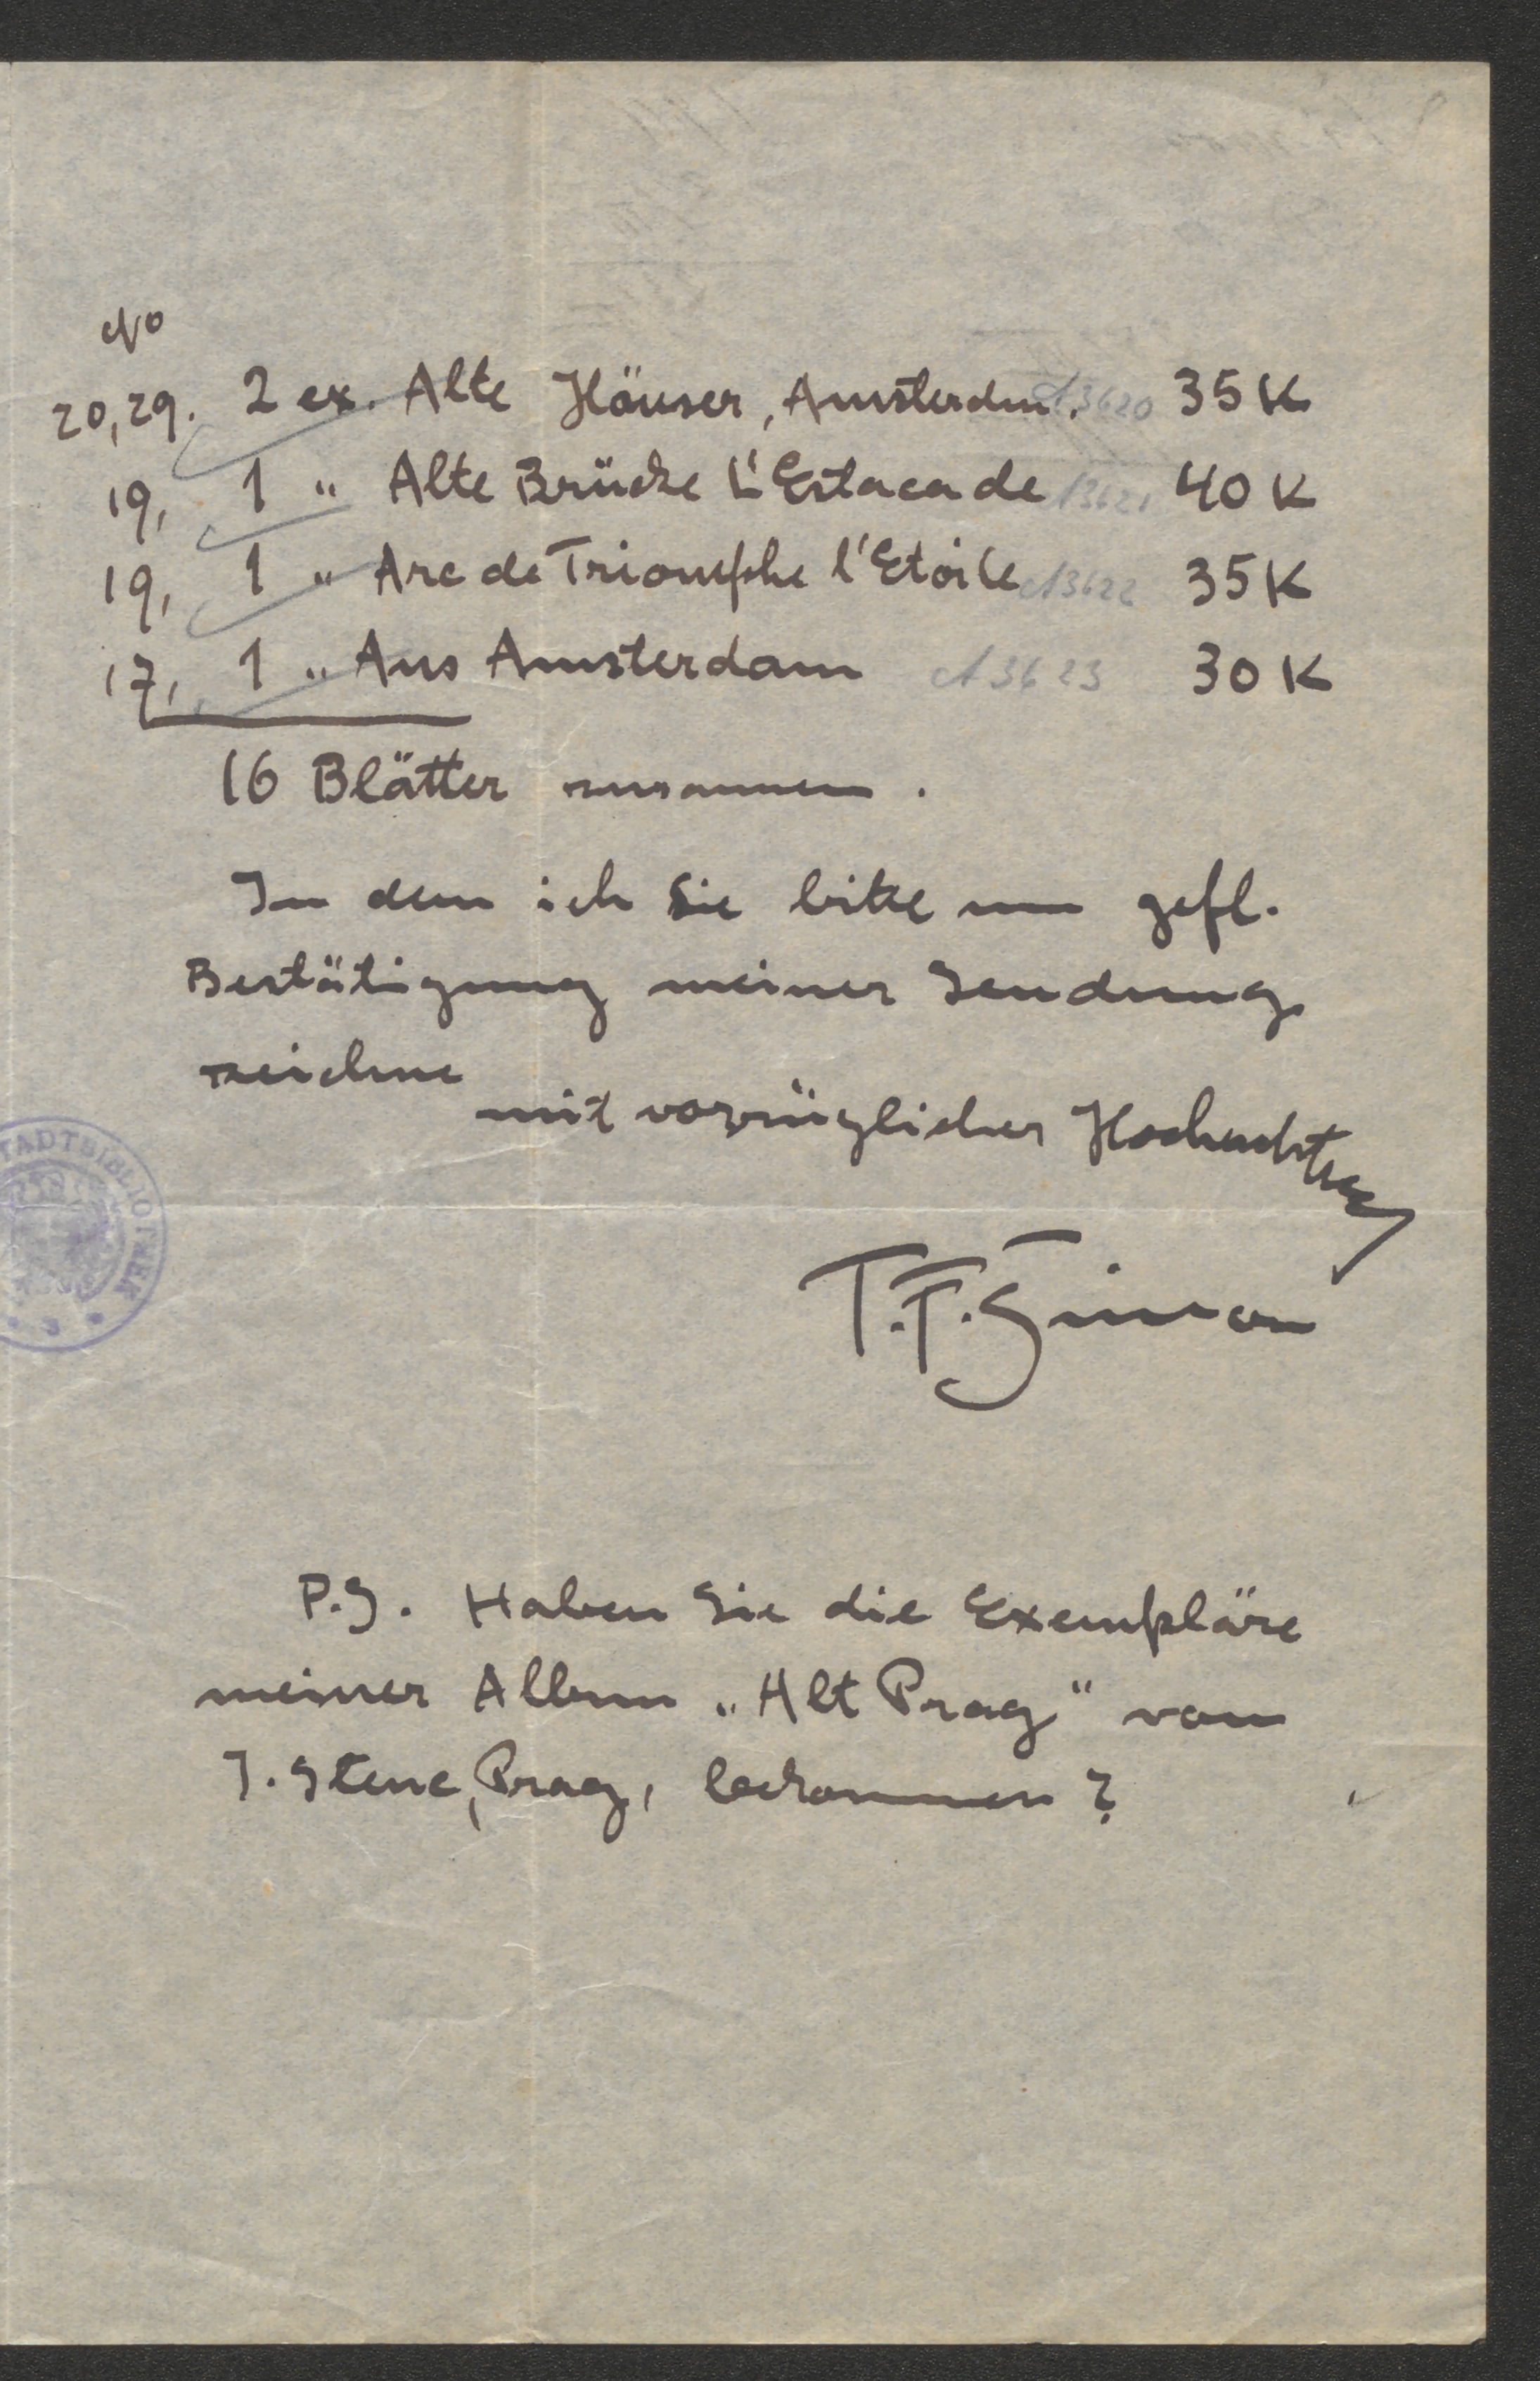 No
20,29. 2 ex. Alte Häuser, Amsterdm. A3620 35 K
19, 1 " Alte Brücke L'Estacade 13621 40 K
19, 1 " Arc de Triomphe l'Etoile A3622 35 K
17, 1 " Aus Amsterdam A3623 30 K
16 Blätter zusammen.
In dem ich Sie bitte um gefl.
Bestätigung meiner Sendung
zeichne
mit vorzüglicher Hochachtung
T.F. Simon
TADTBIBLIOTHEK
P.S. Haben Sie die Exempläre
meiner Album „Alt Prag" von
J. Stenc, Prag, bekommen?